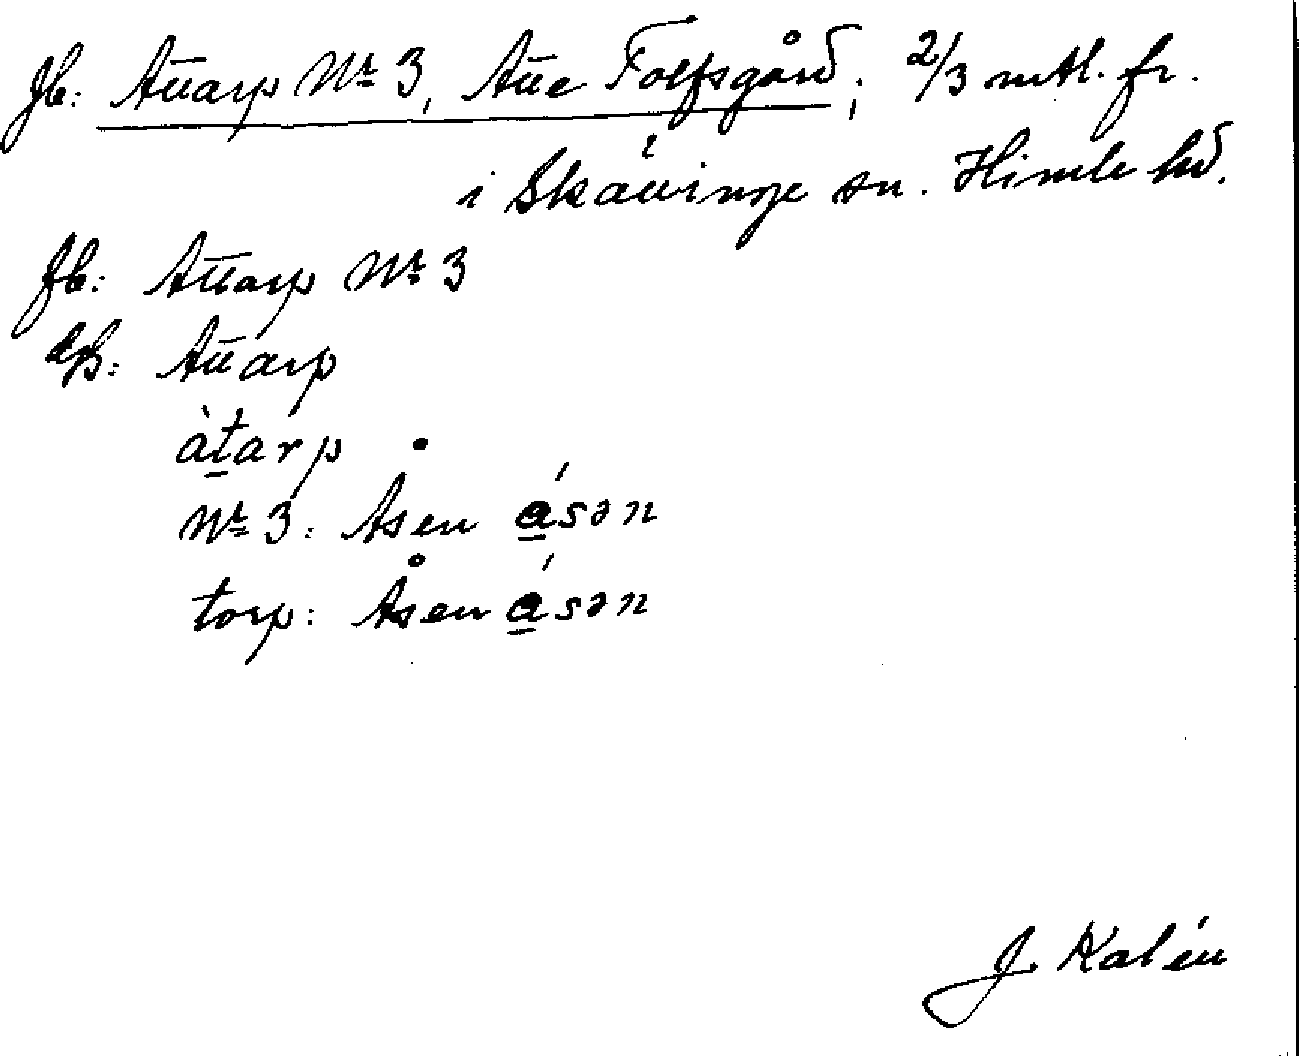 Jb: Attarp Nr 3, Atte Tolfsgård; 2/3 mtl. fr.
i Skällinge sn. Himle hd.
fb: Attarp Nr 3
Attarp
àt̠arp .
Nr 3: Åsen á̠sən
torp: Åsen á̠sən
J. Kalén